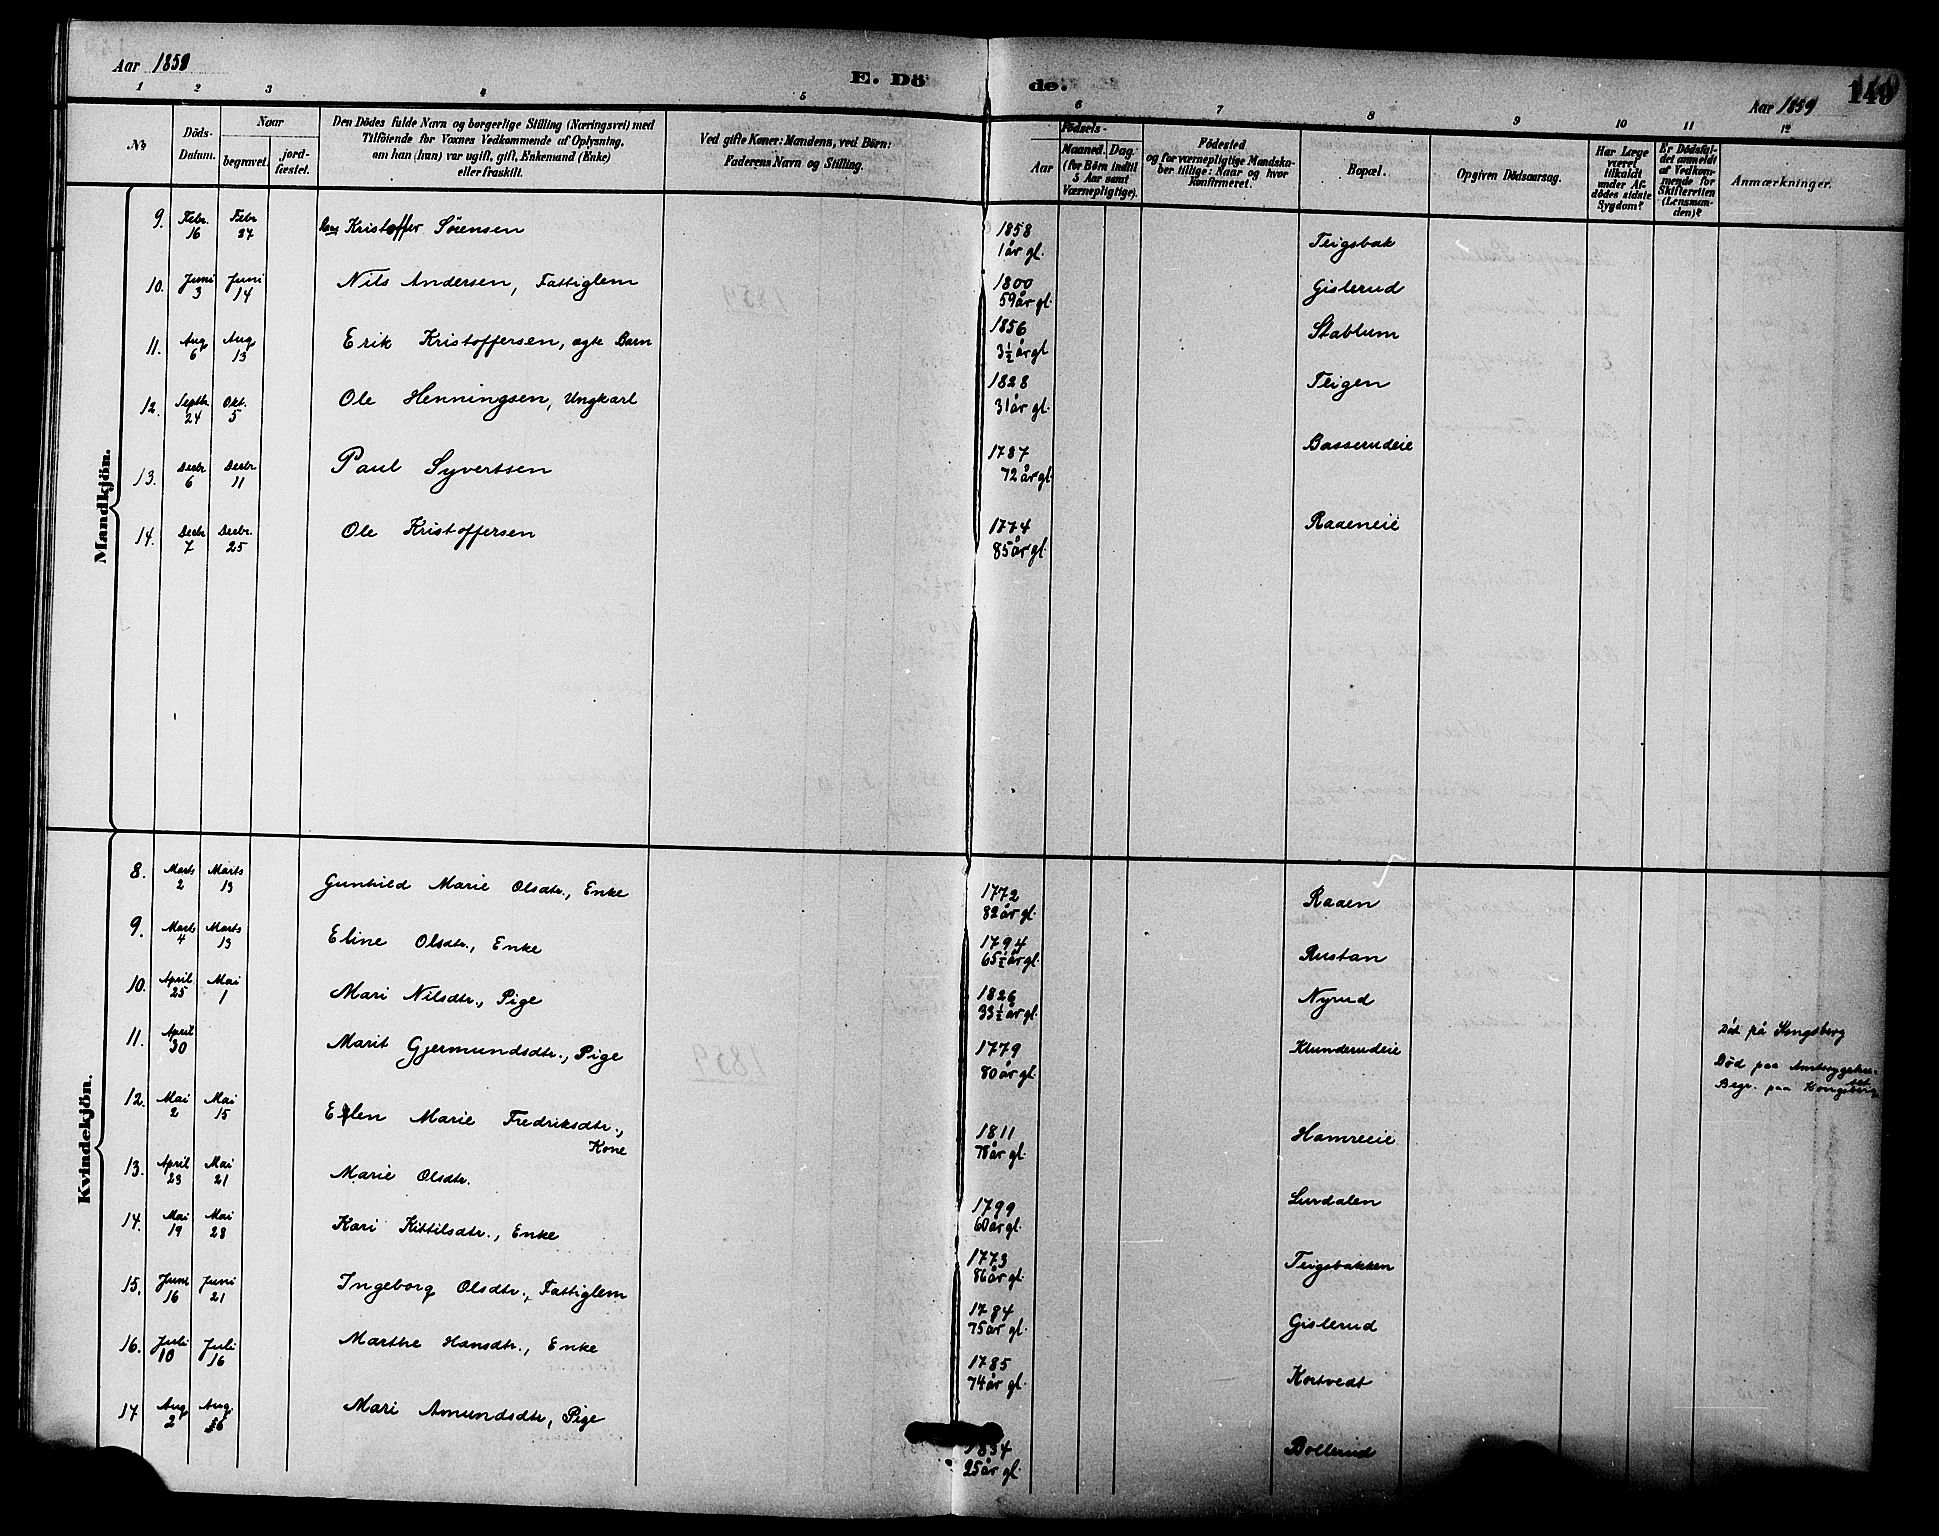 Aar 1859
E. Döde.
Aar 1859 149
1 2 3 4 5 6 7 8 9 10 11 12
No
Döds-Datum.
Naar
begravet.
jord-fæstet.
Den Dödes fulde Navn og borgerlige Stilling (Næringsvei) med
Tilföiende for Voxnes Vedkommende af Oplysning,
om han (hun) var ugift, gift, Enkemand (Enke)
eller fraskilt.
Ved gifte Koner: Mandens, ved Börn:
Faderens Navn og Stilling.
Födsels-
Aar
Maaned. Dag.
(for Börn indtil
5 Aar samt
Værnepligtige).
Födested
og for værnepligtige Mandska-
ber tillige: Naar og hvor
Konfirmeret.
Bopæl.
Opgiven Dödsaarsag.
Har Læge
været
tilkaldt
under Af-
dödes sidste
Sygdom?
Er Dödsfal-
det anmeldt
af Vedkom-
mende for
Skifteretten
(Lensman-
den)?
Anmærkninger.
Mandkjön.
9. Febr. 16 Febr 27 Kristoffer Sørensen 1858 1 år gl. Teigsbak
10. Juni 3 Juni 14 Nils Andersen, Fattiglem 1800 59 år gl. Gislerud
11. Aug 6 Aug 13 Erik Kristoffersen, ægte Barn 1856 3½ år gl Stablum
12. Septbr. 24 Okt. 5 Ole Henningsen, Ungkarl 1828 31 år gl. Teigen
13. Decbr 6 Decbr 11 Paul Syvertsen 1787 72 år gl. Basserudeie
14. Decbr 7 Decbr. 25 Ole Kristoffersen 1774 85 år gl. Raaeneie
Kvindekjön.
8. Marts 2 Marts 13 Gunhild Marie Olsdtr., Enke 1772 82 år gl. Raaen
9. Marts 4 Marts 13 Eline Olsdtr., Enke 1794 65½ år gl. Rustan
10. April 25 Mai 1 Mari Nilsdtr., Pige 1826 33½ år gl. Nyrud
11. April 30 Marit Gjermundsdtr., Pige 1779 80 år gl. Klunderudeie Død paa
Begr. paa Kongsberg
12. Mai 2 Mai 15 Ellen Marie Fredriksdtr.,
Kone 1811 78 år gl. Hamreeie
13. April 23 Mai 21 Marie Olsdtr. 1799 60 år gl. Lurdalen
14. Mai 19 Mai 28 Kari Kittilsdtr., Enke 1773 86 år gl. Teigsbakken
15. Juni 16 Juni 21 Ingeborg Olsdtr., Fattiglem 1784 75 år gl. Gislerud
16. Juli 10 Juli 16 Marthe Hansdtr., Enke 1785 74 år gl. Kortvedt
17 Aug 2 Aug. 16 Mari Amundsdtr, Pige 1834 25 år gl. Bollerud